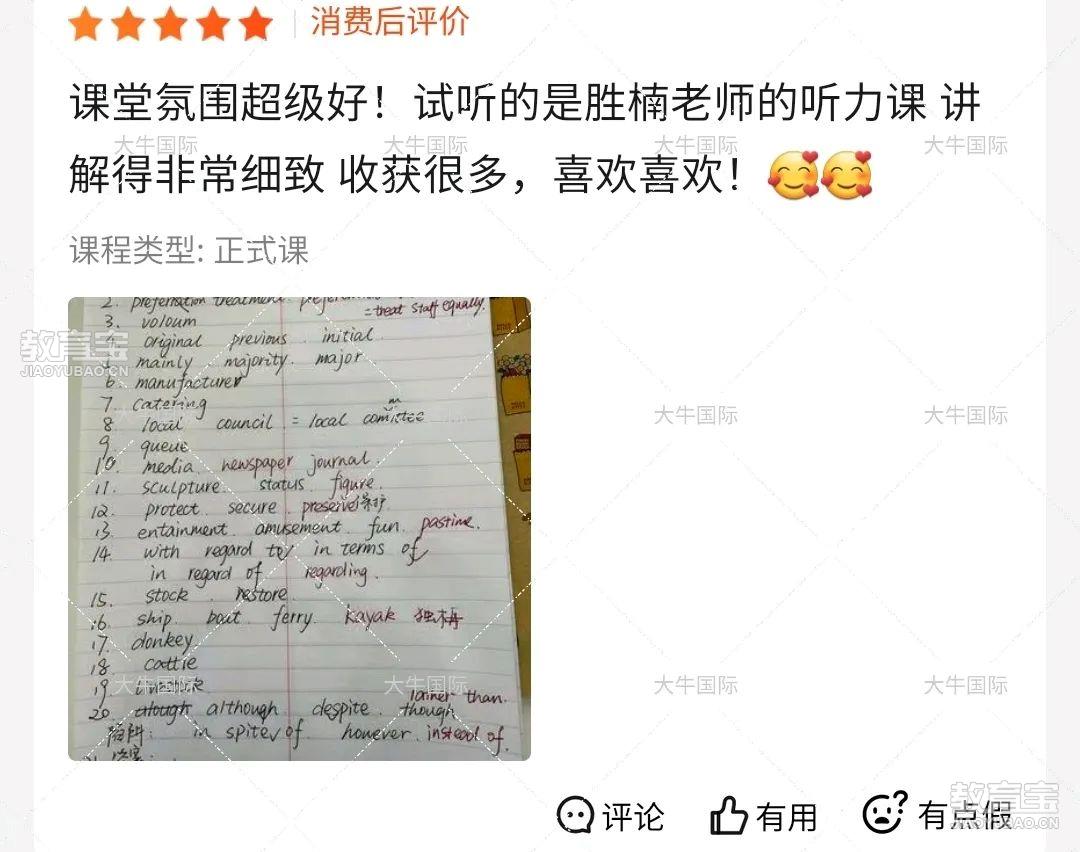 消费后评价
课堂氛围超级好！试听的是胜楠老师的听力课 讲
解得非常细致 收获很多，喜欢喜欢！🥰🥰
课程类型: 正式课
2. treatment
= treat staff equally.
3. voloum
4. original previous initial
5. mainly majority. major
6. manufacturer
7. catering
8. local council = local
9. queue
10. media. newspaper journal
11. sculpture. status figure.
12. protect secure preserve 保护
13. entainment amusement fun. pastime.
14. with regard to in terms of
in regard of regarding.
15. stock. restore
16. ship. boat. ferry. kayak 独木舟
17. donkey
18. cattie
19.
than.
20. alough although despite. though
in spite of however. instead of.
评论 有用 有点假
教育宝
JIAOYUBAO.CN
教育宝
JIAOYUBAO.CN
大牛国际 大牛国际 大牛国际 大牛国际
大牛国际 大牛国际
大牛国际 大牛国际 大牛国际 大牛国际